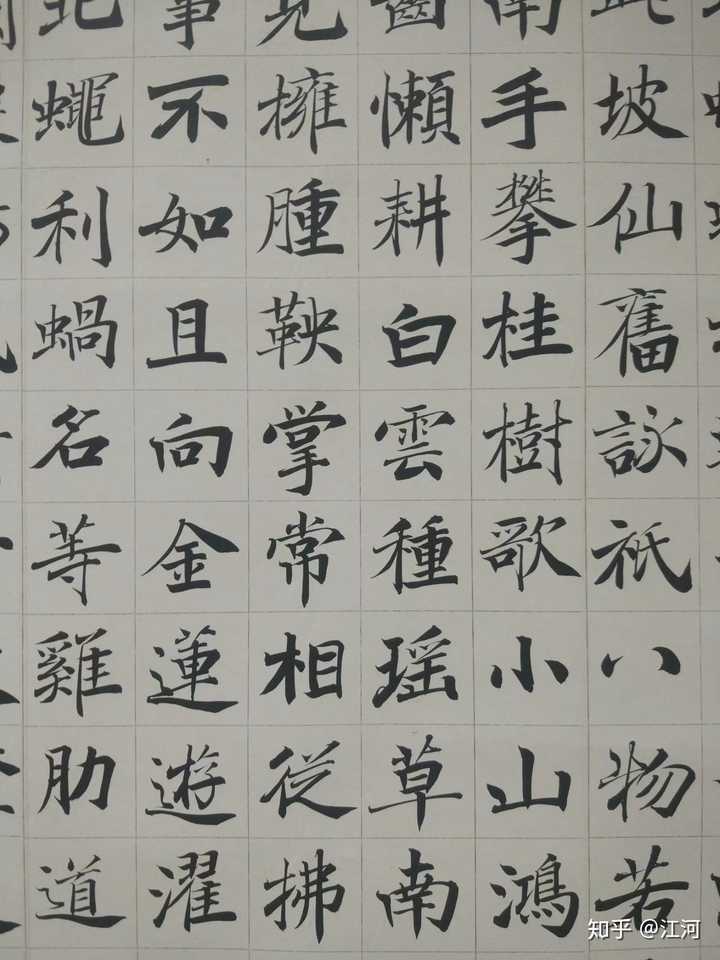 此坡仙舊詠祇八物若
南手攀桂樹歌小山鴻
齒懶耕白雲種瑶草南
見擁腫鞅掌常相從拂
事不如且向金蓮遊濯
北蠅利蝸名等雞肋道
知乎 @江河